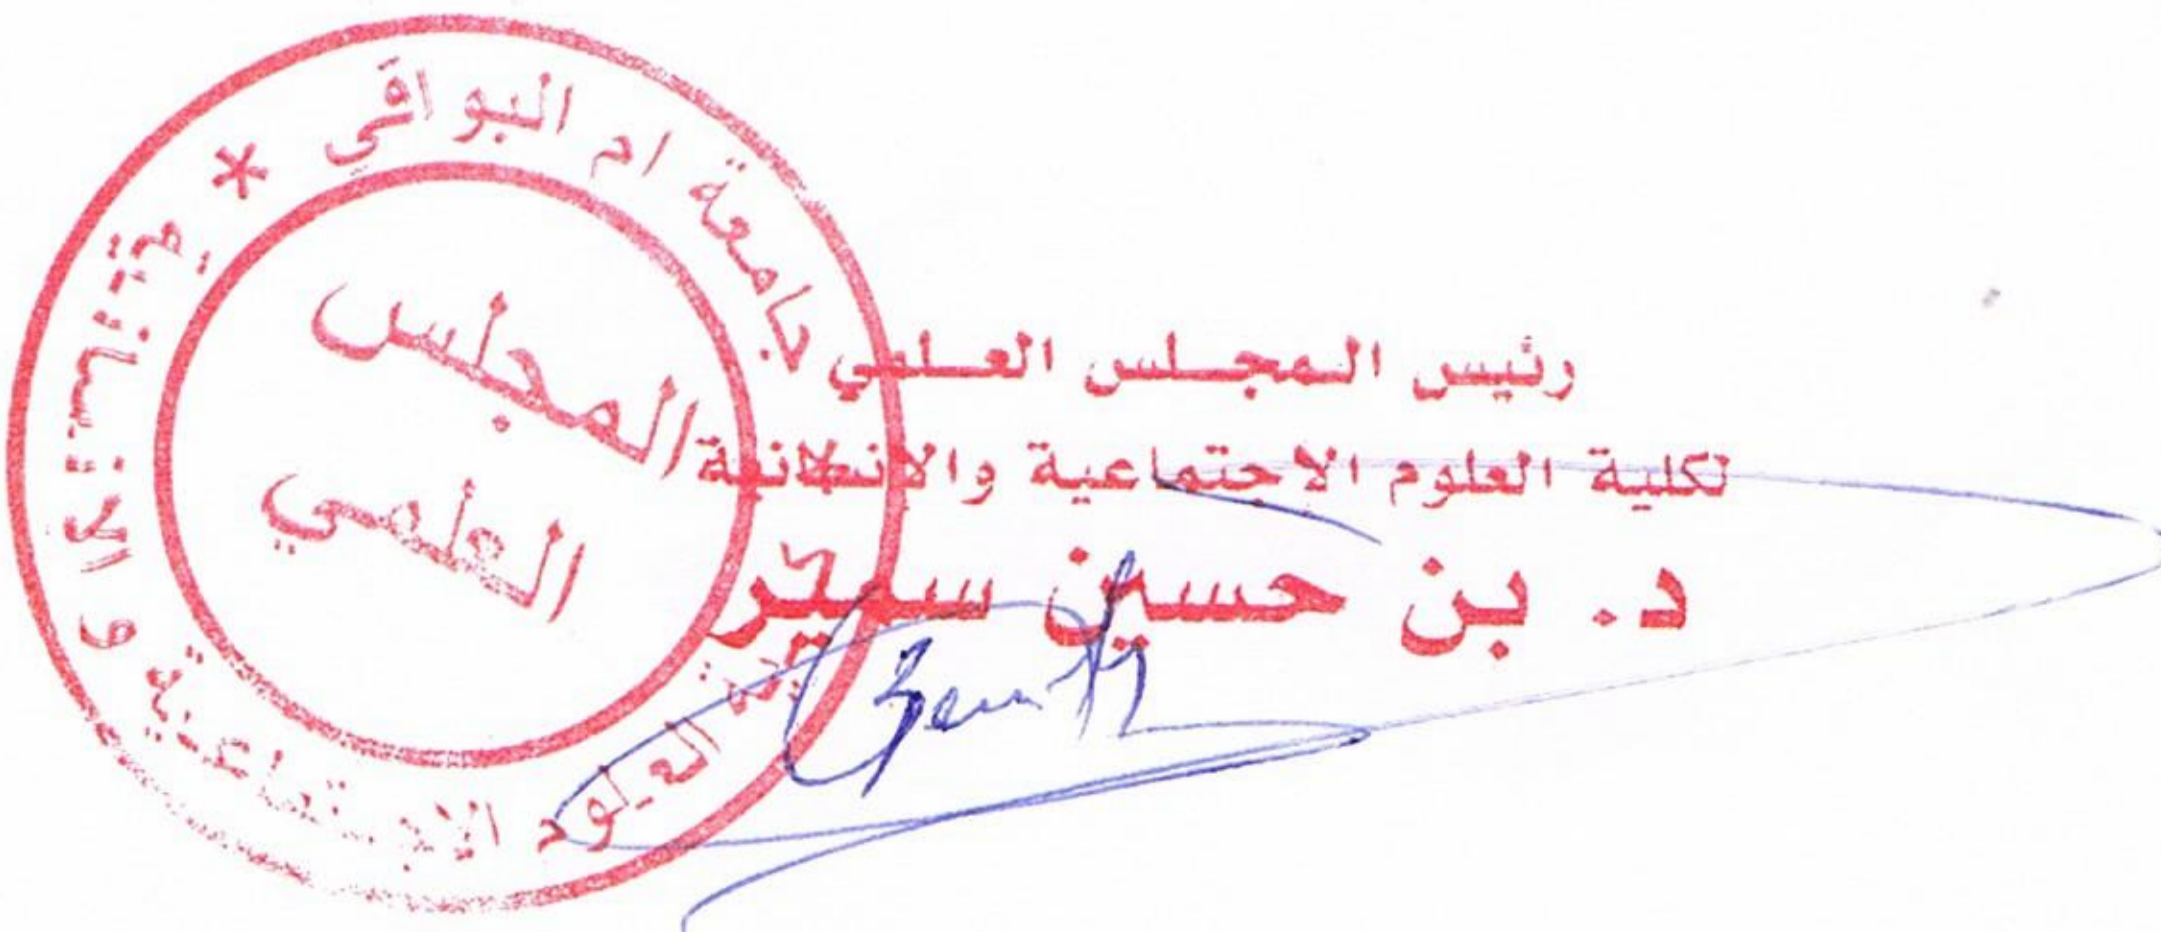 جامعة ام البواقي *
كلية العلوم الاجتماعية و الانسانية
المجلس
العلمي
رئيس المجلس العلمي
لكلية العلوم الاجتماعية والانسانية
د. بن حسين سمير